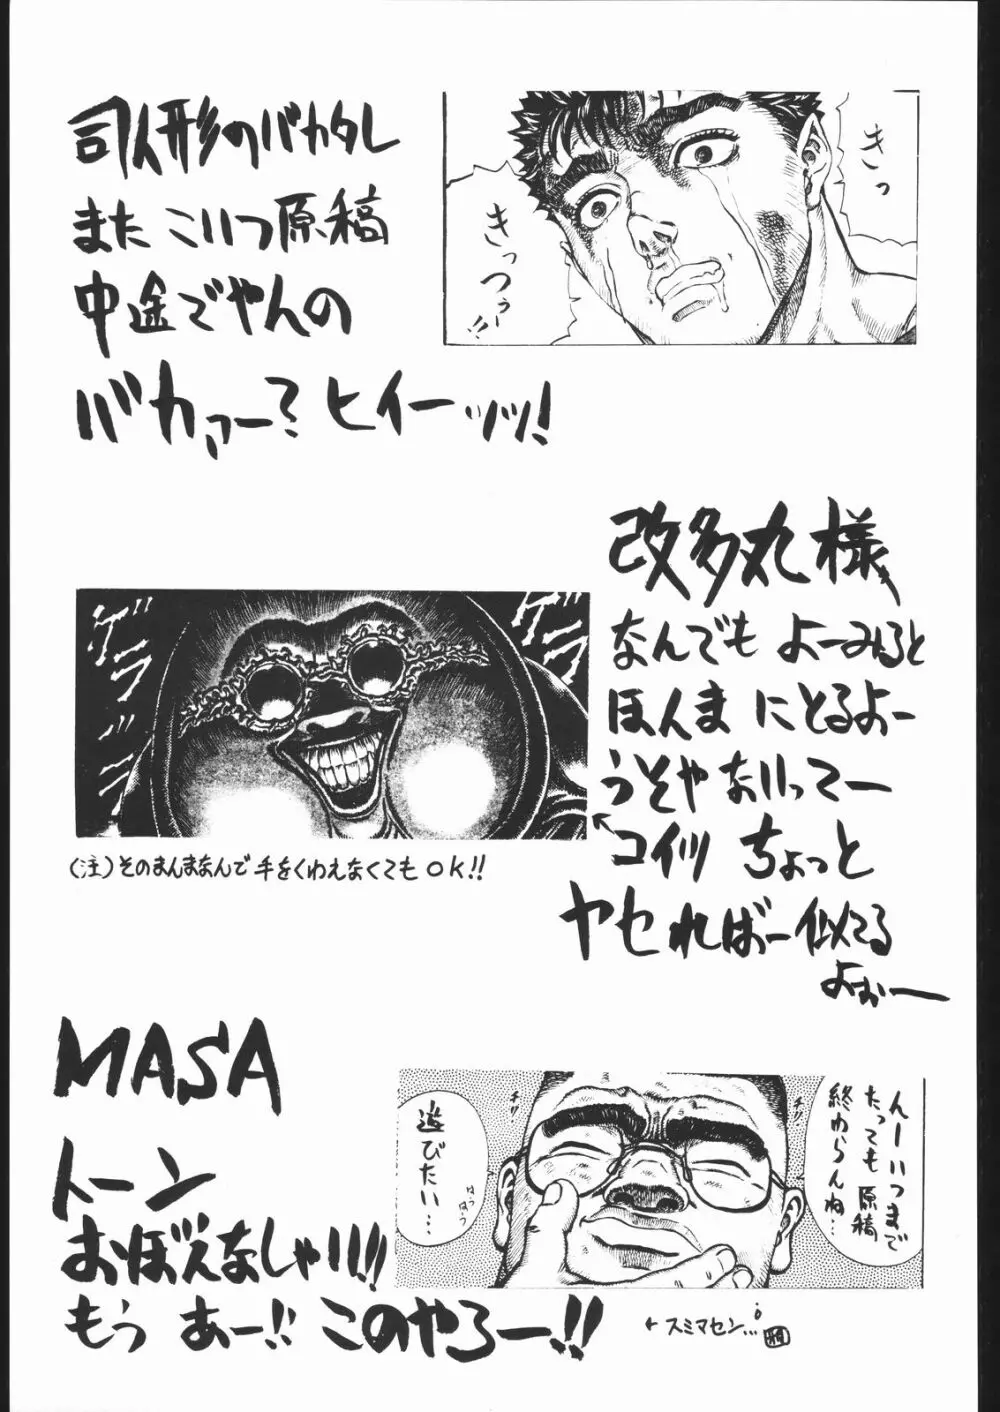 司人形のバカタレ
また こいつ原稿
中途でやんの
バカァー? ヒイーッッ!
きっ
きっつぅー!!
改多丸様
なんでも よーみると
ほんま にとるよー
うそやないってー
コイツ ちょっと
ヤセればー似てる
よぉー
ゲラ
ゲラ
(注)そのまんまなんで手をくわえなくてもOK!!
MASA
トーン
おぼえなしゃい!!
もう あー!! このやろー!!
んーいつまで
たっても原稿
終わらんね…
遊びたい…
はぅ
はぅ
←スミマセン…